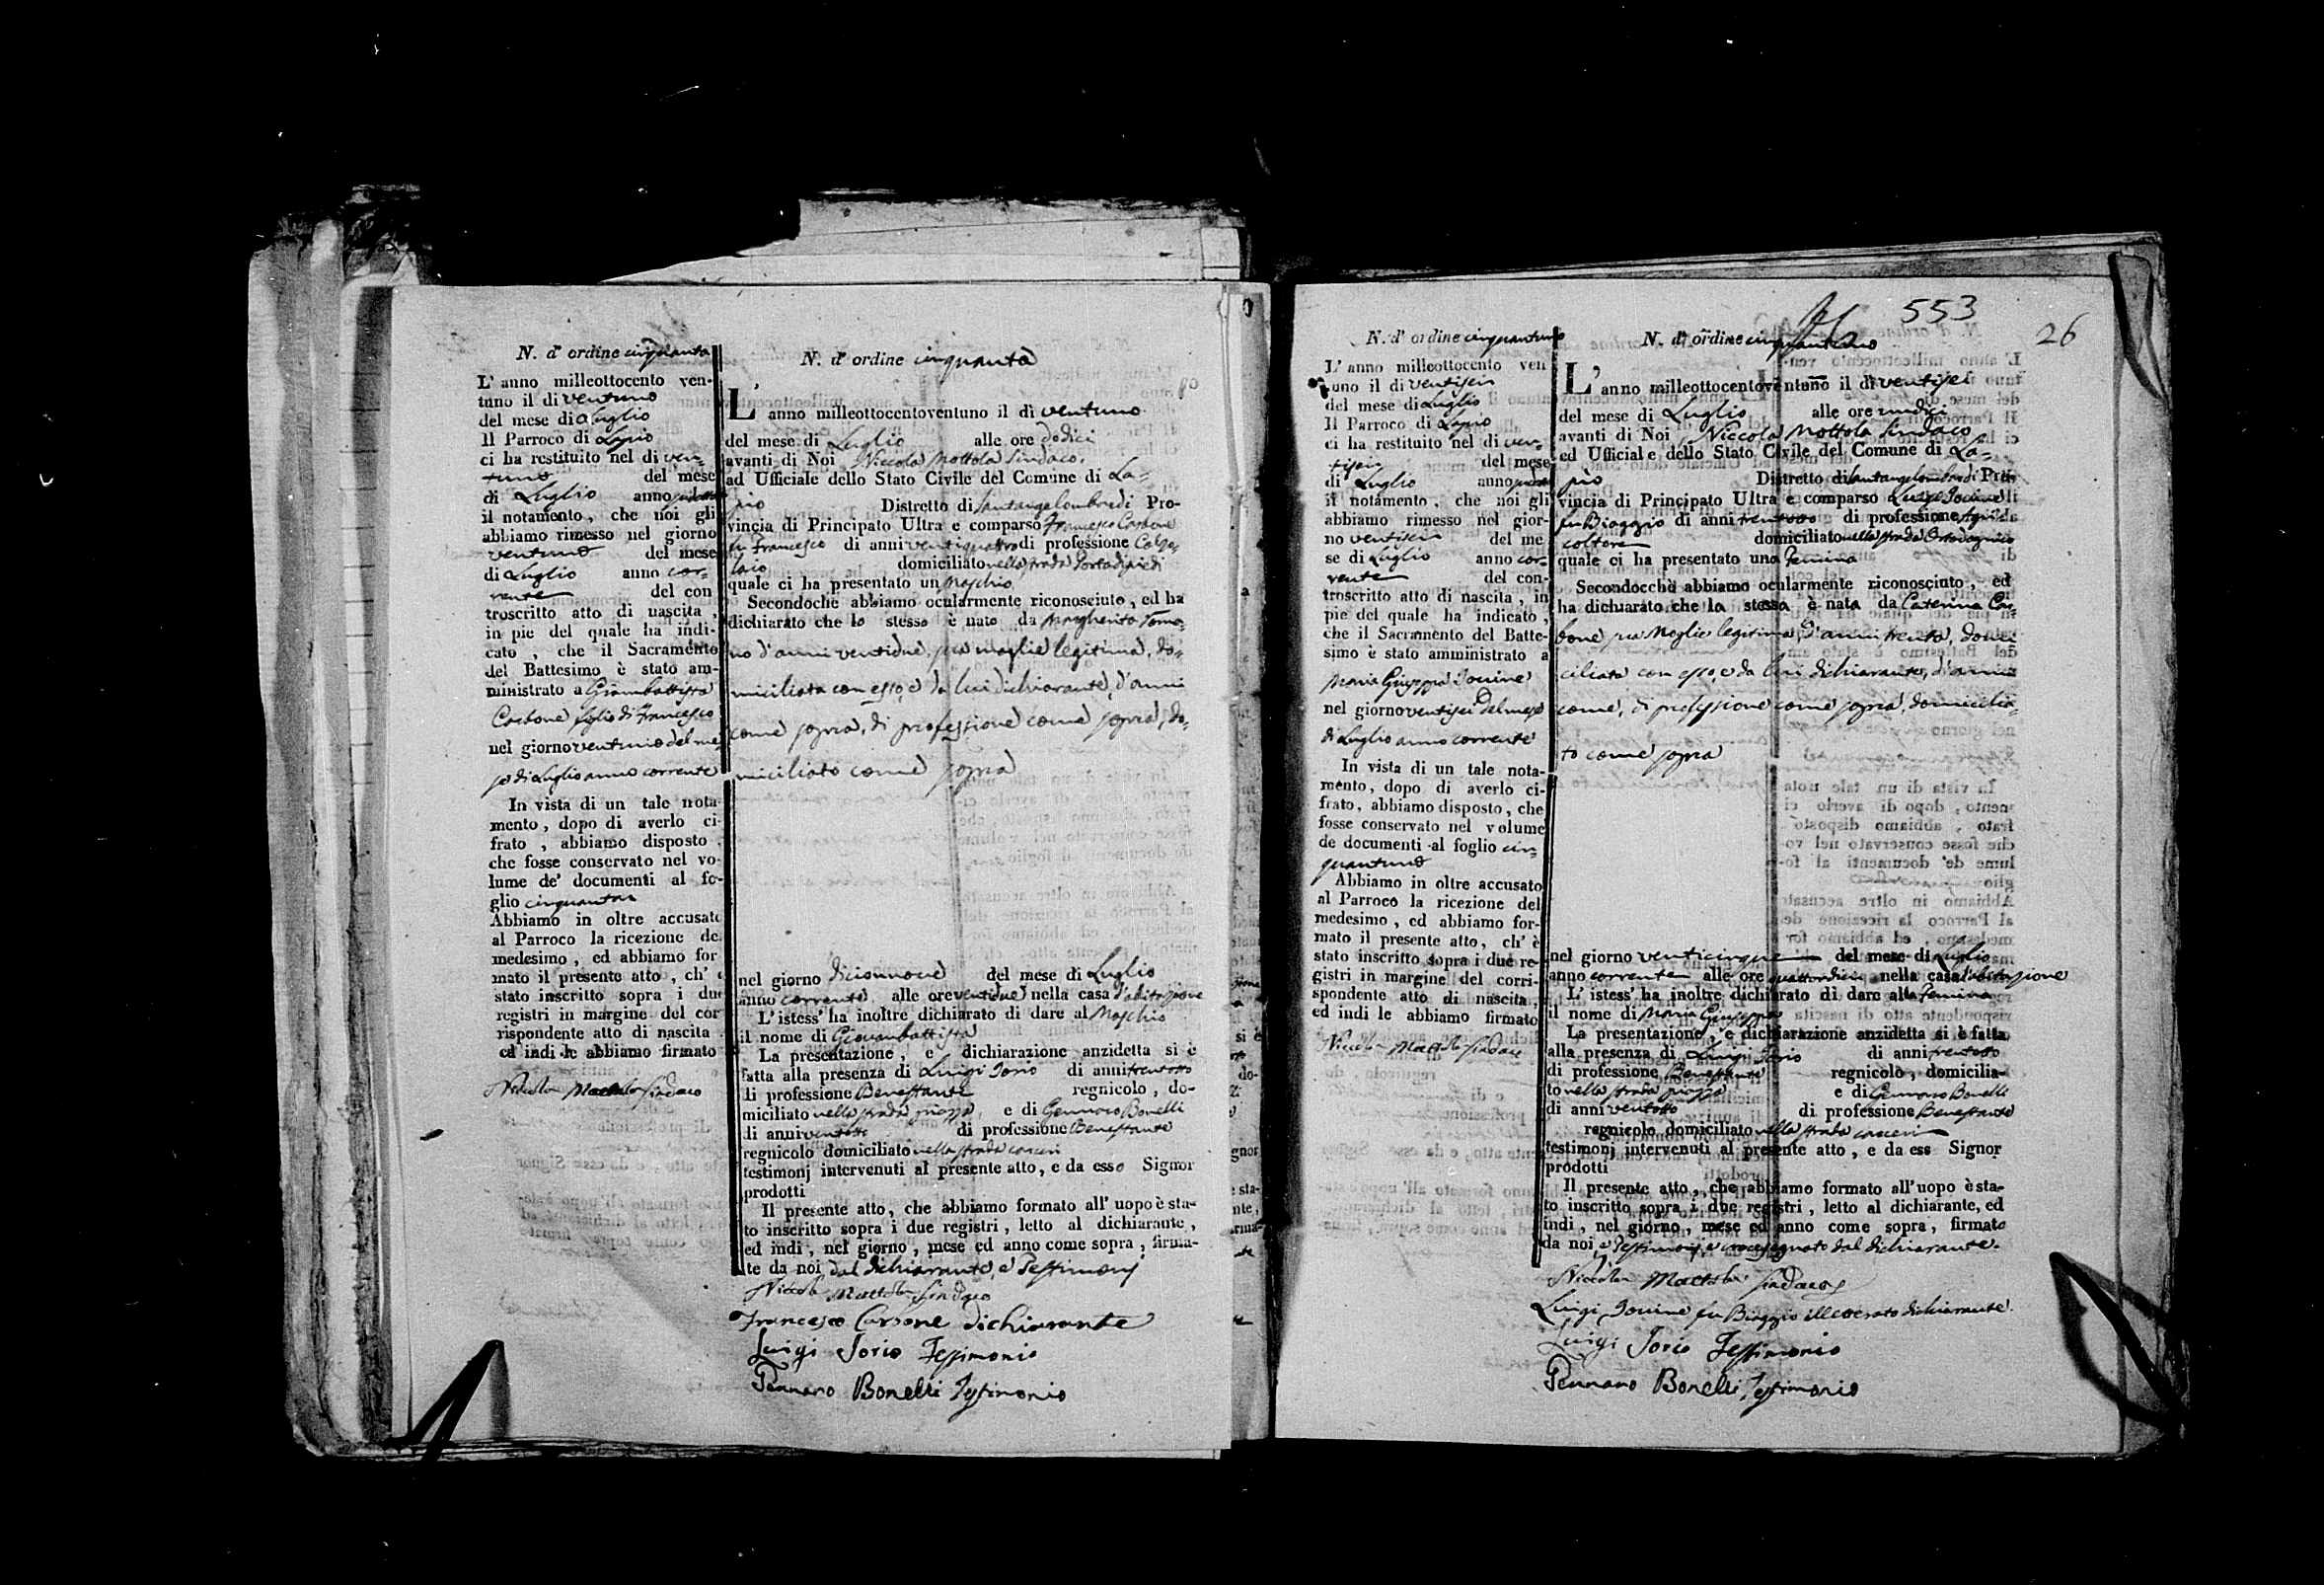 N. d' ordine cinquanta
L' anno milleottocento ven-
tuno il dì ventuno
del mese di Luglio
Il Parroco di Lapio
ci ha restituito nel dì ven-
tuno del mese
di Luglio anno
il notamento, che noi gli
abbiamo rimesso nel giorno
ventuno del mese
di Luglio anno cor-
rente del con
troscritto atto di nascita,
in pie del quale ha indi-
cato, che il Sacramento
del Battesimo è stato am-
ministrato a Giambattista
Carbone figlio di Francesco
nel giorno ventuno del me
se di Luglio anno corrente
In vista di un tale nota
mento, dopo di averlo ci-
frato, abbiamo disposto,
che fosse conservato nel vo-
lume de' documenti al fo-
glio cinquanta
Abbiamo in oltre accusato
al Parroco la ricezione de
medesimo, ed abbiamo for
mato il presente atto, ch' è
stato inscritto sopra i due
registri in margine del cor
rispondente atto di nascita
ed indi le abbiamo firmato
Niccola Mottola Sindaco
N. d' ordine cinquanta
L' anno milleottocentoventuno il dì ventuno
del mese di Luglio alle ore dodici
avanti di Noi Niccola Mottola Sindaco.
ad Ufficiale dello Stato Civile del Comune di La-
pio Distretto di Santangelombardi Pro-
vincia di Principato Ultra e comparso Francesco Carbone
fu Francesco di anni ventiquattro di professione Calzo-
laio domiciliato nella strada Portadipiedi
quale ci ha presentato un Maschio
Secondochè abbiamo ocularmente riconosciuto, ed ha
dichiarato che lo stesso è nato da Margherita Roma-
no d'anni ventidue, sua moglie legitima, do-
miciliata con esso, e da lui dichiarante, d'anni
come sopra, di professione come sopra, do-
miciliato come sopra
nel giorno diciannove del mese di Luglio
anno corrente alle ore ventidue nella casa d'abitazione
L' istess' ha inoltre dichiarato di dare al Maschio
il nome di Giovanbattista
La presentazione, e dichiarazione anzidetta si è
fatta alla presenza di Luigi Iorio di anni trentotto
di professione Benestante regnicolo, do-
miciliato nella strada piazza e di Gennaro Bonelli
di anni ventotto di professione Benestante
regnicolo domiciliato nella strada carceri
testimonj intervenuti al presente atto, e da esso Signor
prodotti
Il presente atto, che abbiamo formato all' uopo è sta-
to inscritto sopra i due registri, letto al dichiarante,
ed indi, nel giorno, mese ed anno come sopra, firma-
te da noi dal dichiarante, e Testimonj
Niccola Mottola Sindaco
Francesco Carbone dichiarante
Luigi Iorio Testimonio
Gennaro Bonelli Testimonio
553
26
N. d' ordine cinquantuno
L' anno milleottocento ven
tuno il dì ventisei
del mese di Luglio
Il Parroco di Lapio
ci ha restituito nel dì ven-
tisei del mese
di Luglio anno
il notamento, che noi gli
abbiamo rimesso nel gior-
no ventisei del me
se di Luglio anno cor-
rente del con-
troscritto atto di nascita, in
pie del quale ha indicato,
che il Sacramento del Batte-
simo è stato amministrato a
Maria Giuseppa Iovine
nel giorno ventisei del mese
di Luglio anno corrente
In vista di un tale nota-
mento, dopo di averlo ci-
frato, abbiamo disposto, che
fosse conservato nel volume
de documenti al foglio cin-
quantuno
Abbiamo in oltre accusato
al Parroco la ricezione del
medesimo, ed abbiamo for-
mato il presente atto, ch' è
stato inscritto sopra i due re-
gistri in margine del corri-
spondente atto di nascita,
ed indi le abbiamo firmato
Niccola Mottola Sindaco
N. d' ordine cinquantuno
L' anno milleottocentoventuno il dì ventisei
del mese di Luglio alle ore undici
avanti di Noi Niccola Mottola Sindaco
ed Ufficiale dello Stato Civile del Comune di La-
pio Distretto di Santangelombardi Pro-
vincia di Principato Ultra e comparso Luigi Iovine
fu Biaggio di anni trentotto di professione Agri-
coltore domiciliato nella strada
quale ci ha presentato una Femina
Secondocchè abbiamo ocularmente riconosciuto, ed
ha dichiarato che la stessa è nata da Caterina Car-
bone sua Moglie legitima, d'anni trenta, domi
ciliata con esso, e da lui dichiarante, d'anni
come, di professione come sopra, domicilia-
to come sopra
nel giorno venticinque del mese di Luglio
anno corrente alle ore quattordici nella casa d'abitazione
L' istess' ha inoltre dichiarato di dare alla Femina
il nome di Maria Giuseppa
La presentazione, e dichiarazione anzidetta si è fatta
alla presenza di Luigi Iorio di anni trentotto
di professione Benestante regnicolo, domicilia-
to nella strada piazza e di Gennaro Bonelli
di anni ventotto di professione Benestante
regnicolo domiciliato nella strada carceri
testimonj intervenuti al presente atto, e da ess Signor
prodotti
Il presente atto, che abbiamo formato all' uopo è sta-
to inscritto sopra i due registri, letto al dichiarante, ed
indi, nel giorno, mese ed anno come sopra, firmato
da noi, e Testimonj, e crocesegnato dal dichiarante.
Niccola Mottola Sindaco
Luigi Iovine fu Biaggio illetterato dichiarante.
Luigi Iorio Testimonio
Gennaro Bonelli Testimonio